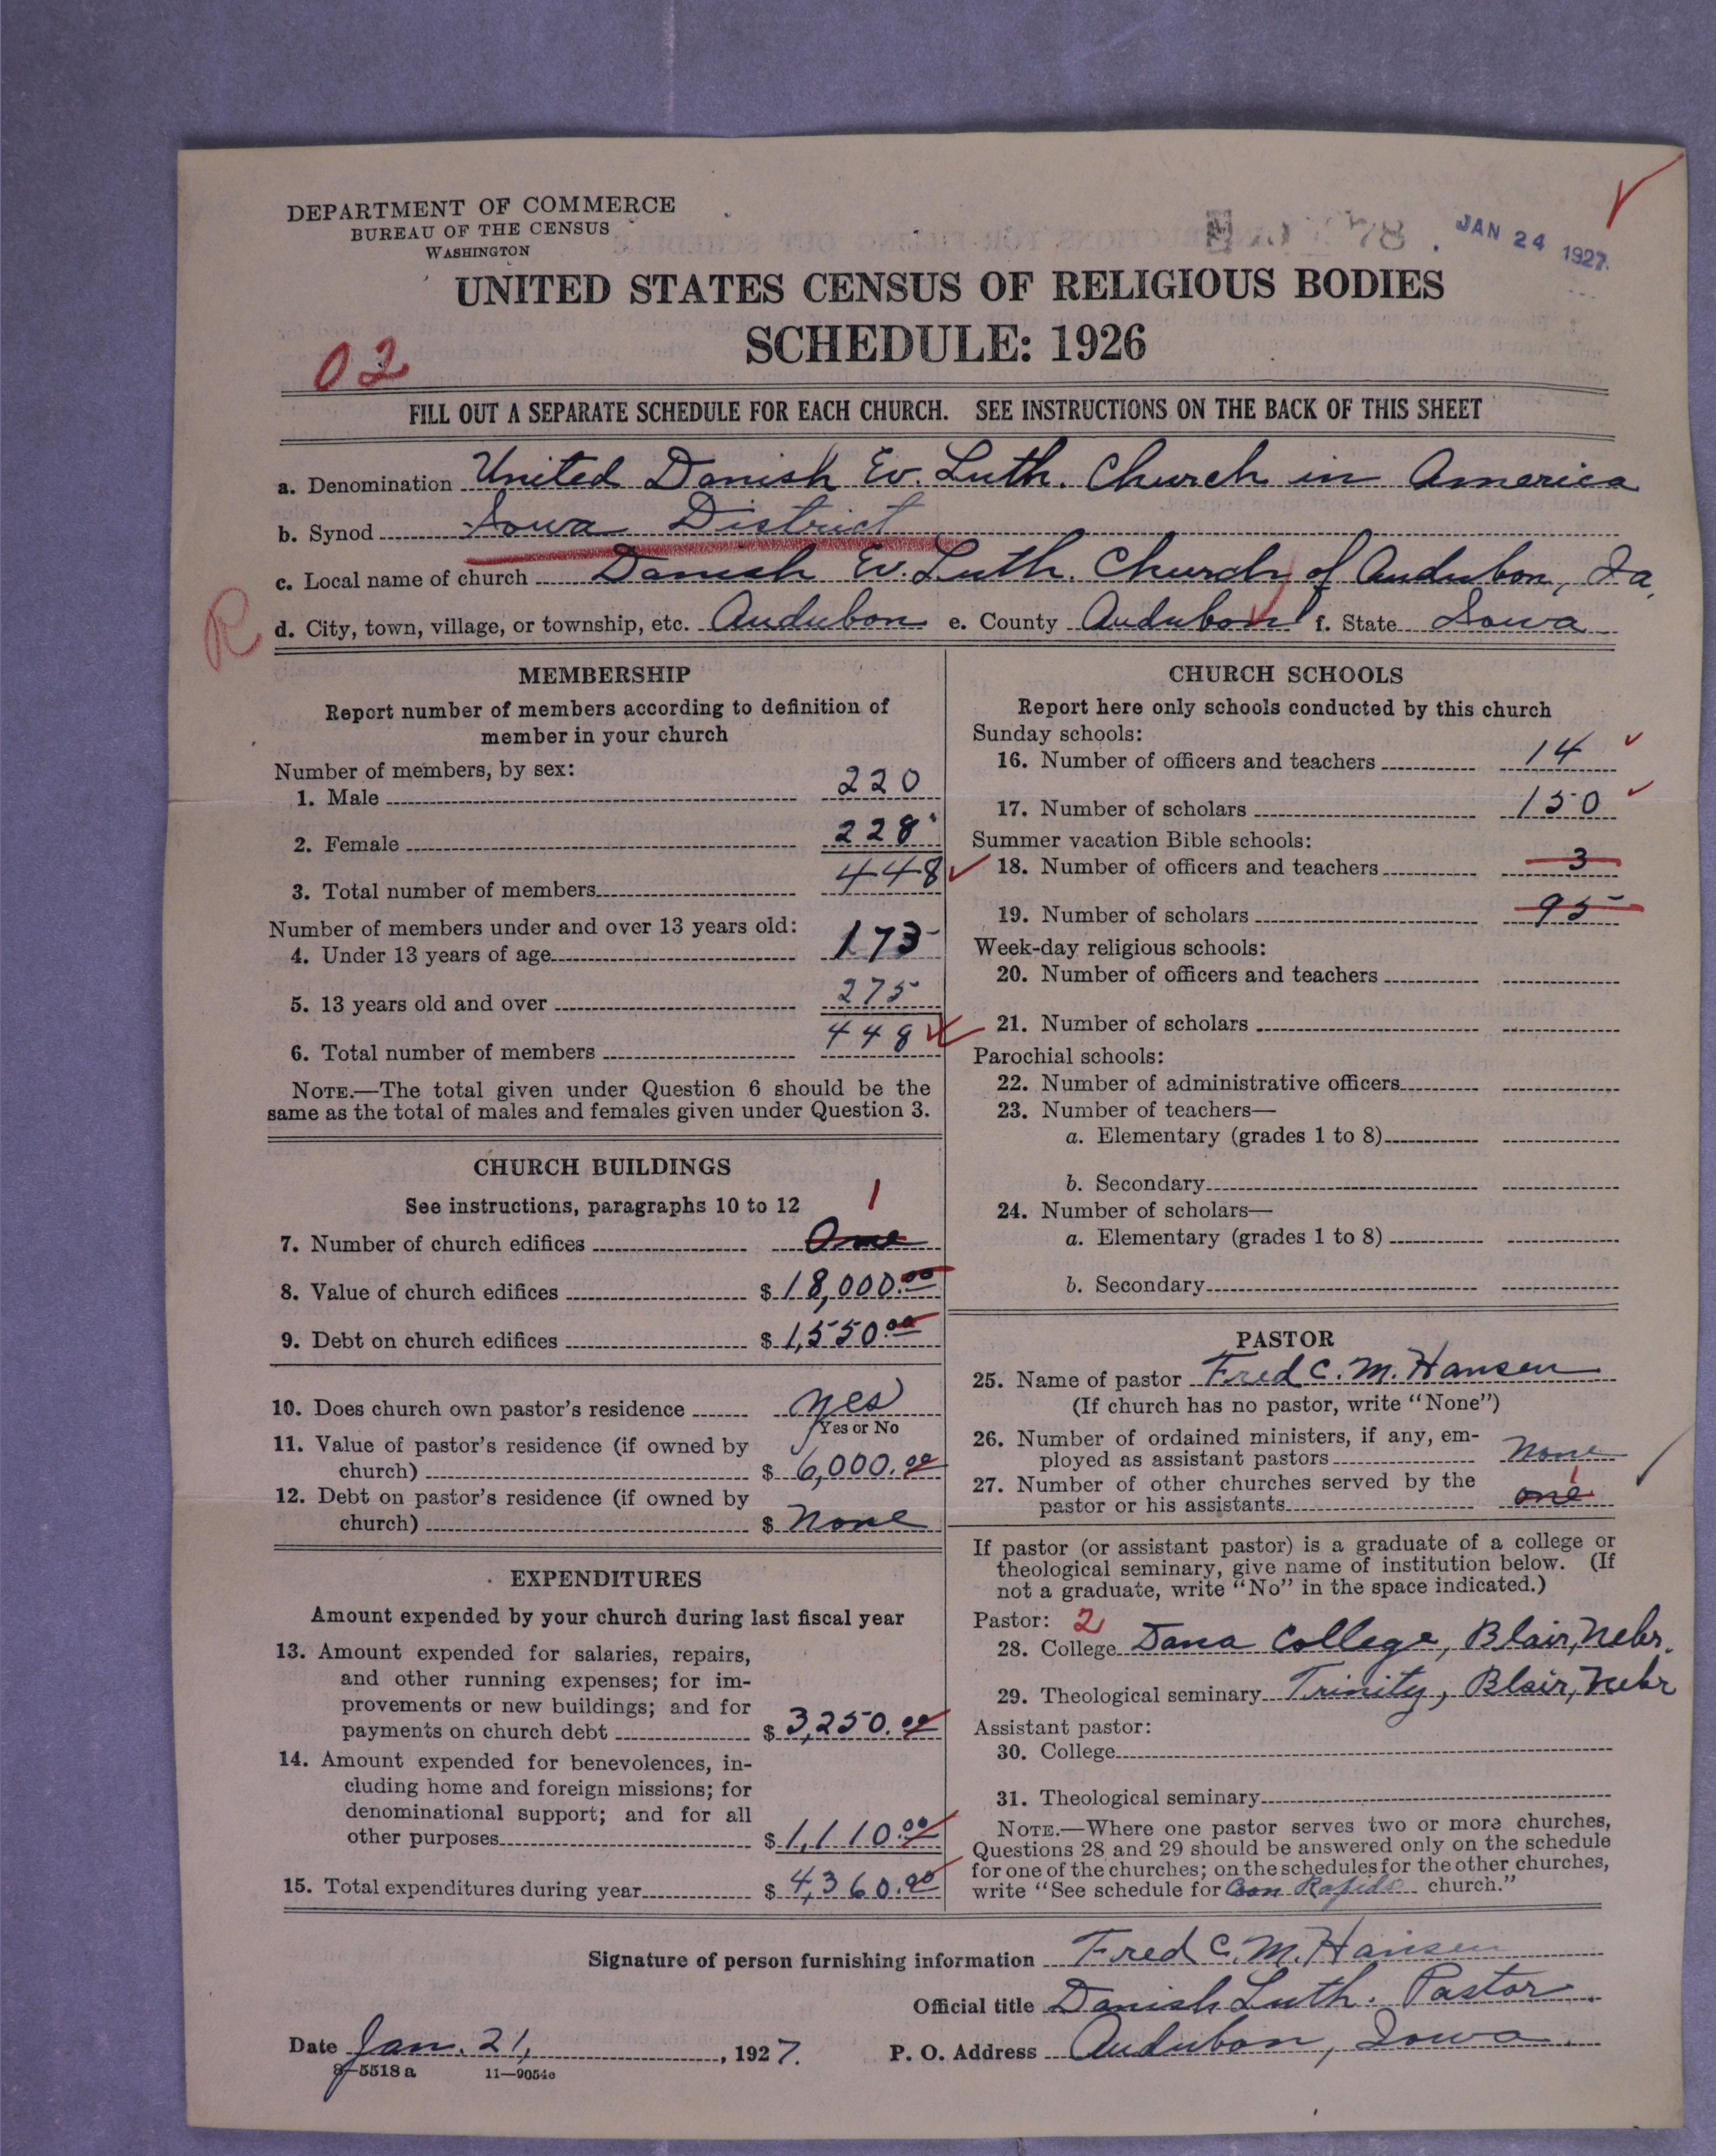 DEPARTMENT OF COMMERCE
BUREAU OF THE CENSUS
WASHINGTON
JAN 24 1927.
UNITED STATES CENSUS OF RELIGIOUS BODIES
SCHEDULE: 1926
02
FILL OUT A SEPARATE SCHEDULE FOR EACH CHURCH. SEE INSTRUCTIONS ON THE BACK OF THIS SHEET
a. Denomination United Danish Ev. Luth. Church in America
b. Synod Iowa District
c. Local name of church Danish Ev. Luth. Church of Audubon, Ia.
R
d. City, town, village, or township, etc. Audubon e. County Audubon f. State Iowa
MEMBERSHIP
Report number of members according to definition of
member in your church
Number of members, by sex:
1. Male 220
2. Female 228
3. Total number of members 448
Number of members under and over 13 years old:
4. Under 13 years of age 173
5. 13 years old and over 275
6. Total number of members 448
NOTE.—The total given under Question 6 should be the
same as the total of males and females given under Question 3.
CHURCH BUILDINGS
See instructions, paragraphs 10 to 12
1
7. Number of church edifices One
8. Value of church edifices $ 18,000.00
9. Debt on church edifices $ 1,550.00
10. Does church own pastor's residence yes
Yes or No
11. Value of pastor's residence (if owned by
church) $ 6,000.00
12. Debt on pastor's residence (if owned by
church) $ None
EXPENDITURES
Amount expended by your church during last fiscal year
13. Amount expended for salaries, repairs,
and other running expenses; for im-
provements or new buildings; and for
payments on church debt $ 3,250.00
14. Amount expended for benevolences, in-
cluding home and foreign missions; for
denominational support; and for all
other purposes $ 1,110.00
15. Total expenditures during year $ 4,360.00
CHURCH SCHOOLS
Report here only schools conducted by this church
Sunday schools:
16. Number of officers and teachers 14
17. Number of scholars 150
Summer vacation Bible schools:
18. Number of officers and teachers 3
19. Number of scholars 95
Week-day religious schools:
20. Number of officers and teachers
21. Number of scholars
Parochial schools:
22. Number of administrative officers
23. Number of teachers—
a. Elementary (grades 1 to 8)
b. Secondary
24. Number of scholars—
a. Elementary (grades 1 to 8)
b. Secondary
PASTOR
25. Name of pastor Fred C. M. Hansen
(If church has no pastor, write "None")
26. Number of ordained ministers, if any, em-
ployed as assistant pastors None
27. Number of other churches served by the
1
pastor or his assistants one
If pastor (or assistant pastor) is a graduate of a college or
theological seminary, give name of institution below. (If
not a graduate, write "No" in the space indicated.)
Pastor: 2
28. College Dana College, Blair, Nebr.
29. Theological seminary Trinity, Blair, Nebr
Assistant pastor:
30. College
31. Theological seminary
NOTE.—Where one pastor serves two or more churches,
Questions 28 and 29 should be answered only on the schedule
for one of the churches; on the schedules for the other churches,
write "See schedule for Coon Rapids church."
Signature of person furnishing information Fred C. M. Hansen
Official title Danish Luth. Pastor
Date Jan. 21, 1927. P. O. Address Audubon, Iowa.
8-5518 a 11—9054c